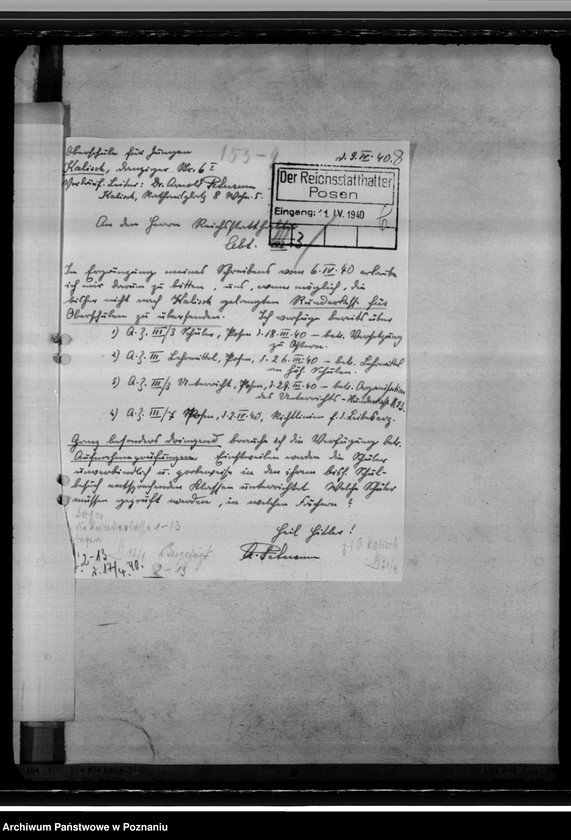 Oberschule für Jungen
Kalisch, Danziger Str. 6 I
Leiter: Dr. Arnold Petmann
Kalisch, Rathausplatz 8 Wohn. 5.
153-9
d. 9. IV. 40. 8
Der Reichsstatthalter
Posen
Eingang: 11. IV. 1940
An den Herrn Reichsstatthalter
Abt. III 3
In Ergänzung meines Schreibens vom 6. IV. 40 erlaube
ich mir darum zu bitten, uns, wenn möglich, die
bisher nicht nach Kalisch gelangten Runderlasse für
Oberschulen zu übersenden. Ich verfüge bereits über
1) A.Z. III/3 Schüler, Posen d. 18. III. 40 – betr. Versetzung
zu Ostern.
2) A.Z. III Lehrmittel, Posen, d. 26. III. 40 – betr. Lehrmittel
an höh. Schulen.
3) A.Z. III/3 Unterricht, Posen, d. 29. III. 40 – betr. Organisation
des Unterrichts – Runderlaß N. 13.
4) A.Z. III/7 Posen, d. 2. IV. 40, Richtlinien f. d. Leibeserz.
Ganz besonders dringend brauche ich die Verfügung betr.
Aufnahmeprüfungen. Einstweilen werden die Schüler
unverbindlich u. probeweise in den ihrem bish. Schul-
besuch entsprechenden Klassen unterrichtet. Welche Schüler
müssen geprüft werden, in welchen Fächern?
Heil Hitler!
A. Petmann
Runderlasse 1-13
2-13
17/4. 40.
2-13
Kalisch
Archiwum Państwowe w Poznaniu